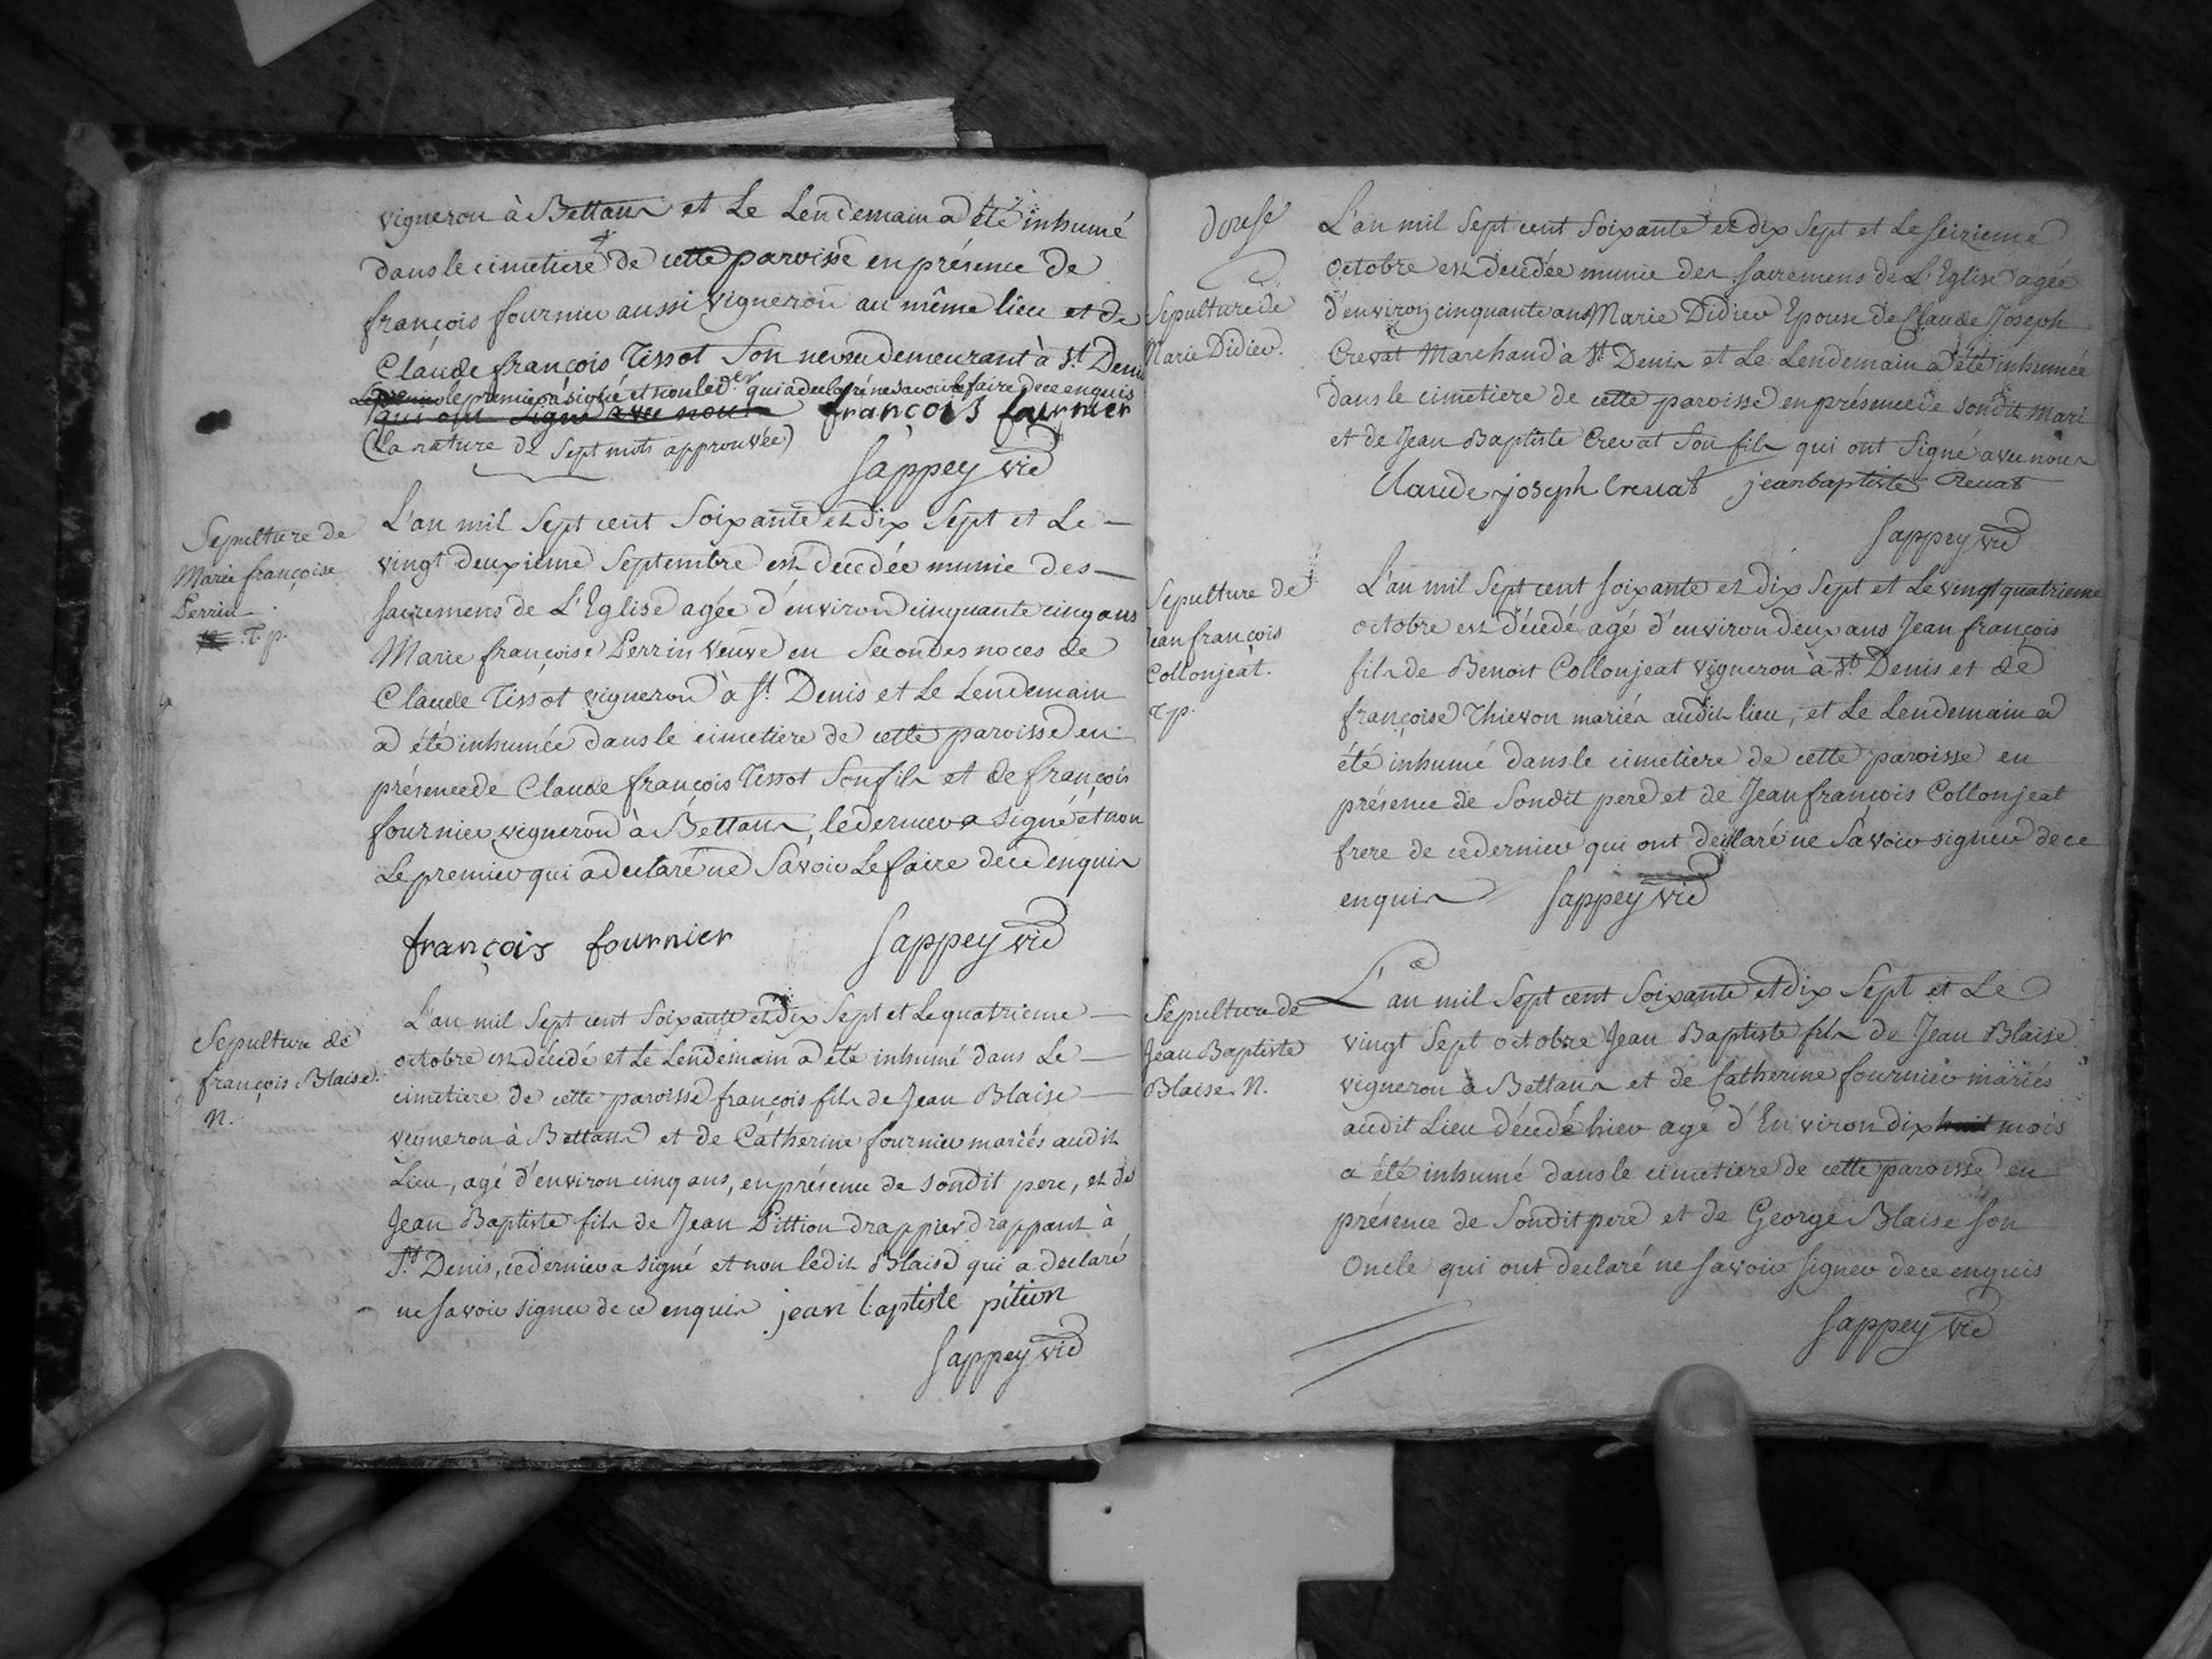 vigneron à Bettans et Le Lendemain a été inhumé
dans le cimetiere de cette paroisse en présence de
françois fournier aussi vigneron au même lieu et de
Claude françois Tissot Son neveu demeurant à St Denis
le premier a signé et non led.er qui a declaré ne Savoir le faire de ce enquis
qui ont Signé avec nous françois fournier
(la rature de Sept mots approuvée)
Sappey vic
Sepulture de
Marie françoise
Perrin
T. p.
L'an mil Sept cent Soixante et dix Sept et Le
vingt deuxieme Septembre est decedée munie des
sacremens de L'Eglise agée d'environ cinquante cinq ans
Marie françoise Perrin Veuve en Secondes noces de
Claude Tissot vigneron à St Denis et Le Lendemain
a été inhumée dans le cimetiere de cette paroisse en
présence de Claude françois Tissot Son fils et de françois
fournier vigneron à Bettans, le dernier a signé et non
Le premier qui a declaré ne Savoir Le faire de ce enquis
françois fournier Sappey vic
Sepulture de
françois Blaise.
N.
L'an mil Sept cent Soixante et dix Sept et Le quatrieme
octobre est décedé et Le Lendemain a été inhumé dans Le
cimetiere de cette paroisse françois fils de Jean Blaise
vigneron à Bettans et de Catherine fournier mariés audit
Lieu, agé d'environ cinq ans, en présence de sondit pere, et de
Jean Baptiste fils de Jean Pittion drappier drappant à
St Denis, ce dernier a signé et non ledit Blaise qui a declaré
ne Savoir signer de ce enquis jean baptiste pition
Sappey vic
Sepulture de
Marie Didier.
L'an mil Sept cent Soixante et dix Sept et Le Seizieme
octobre est decedée munie des sacremens de L'Eglise agée
d'environ cinquante ans Marie Didier Epouse de Claude Joseph
Crevat Marchand à St Denis et Le Lendemain a été inhumée
dans le cimetiere de cette paroisse en présence de sondit Mari
et de Jean Baptiste Crevat Son fils qui ont Signé avec nous
Claude joseph Crevat jean baptiste Crevat
Sappey vic
Sepulture de
Jean françois
Collonjeat.
T p.
L'an mil Sept cent Soixante et dix Sept et Le vingt quatrieme
octobre est décedé agé d'environ deux ans Jean françois
fils de Benoit Collonjeat vigneron à St Denis et de
françoise Thievon mariés audit lieu, et Le Lendemain a
été inhumé dans le cimetiere de cette paroisse en
présence de Sondit pere et de Jean françois Collonjeat
frere de ce dernier qui ont declaré ne Savoir signer de ce
enquis Sappey vic
Sepulture de
Jean Baptiste
Blaise. N.
L'an mil Sept cent Soixante et dix Sept et Le
vingt Sept octobre Jean Baptiste fils de Jean Blaise
vigneron à Bettans et de Catherine fournier mariés
audit Lieu décedé hier agé d'Environ dix huit mois
a été inhumé dans le cimetiere de cette paroisse en
présence de Sondit pere et de George Blaise Son
Oncle qui ont declaré ne Savoir signer de ce enquis
Sappey vic